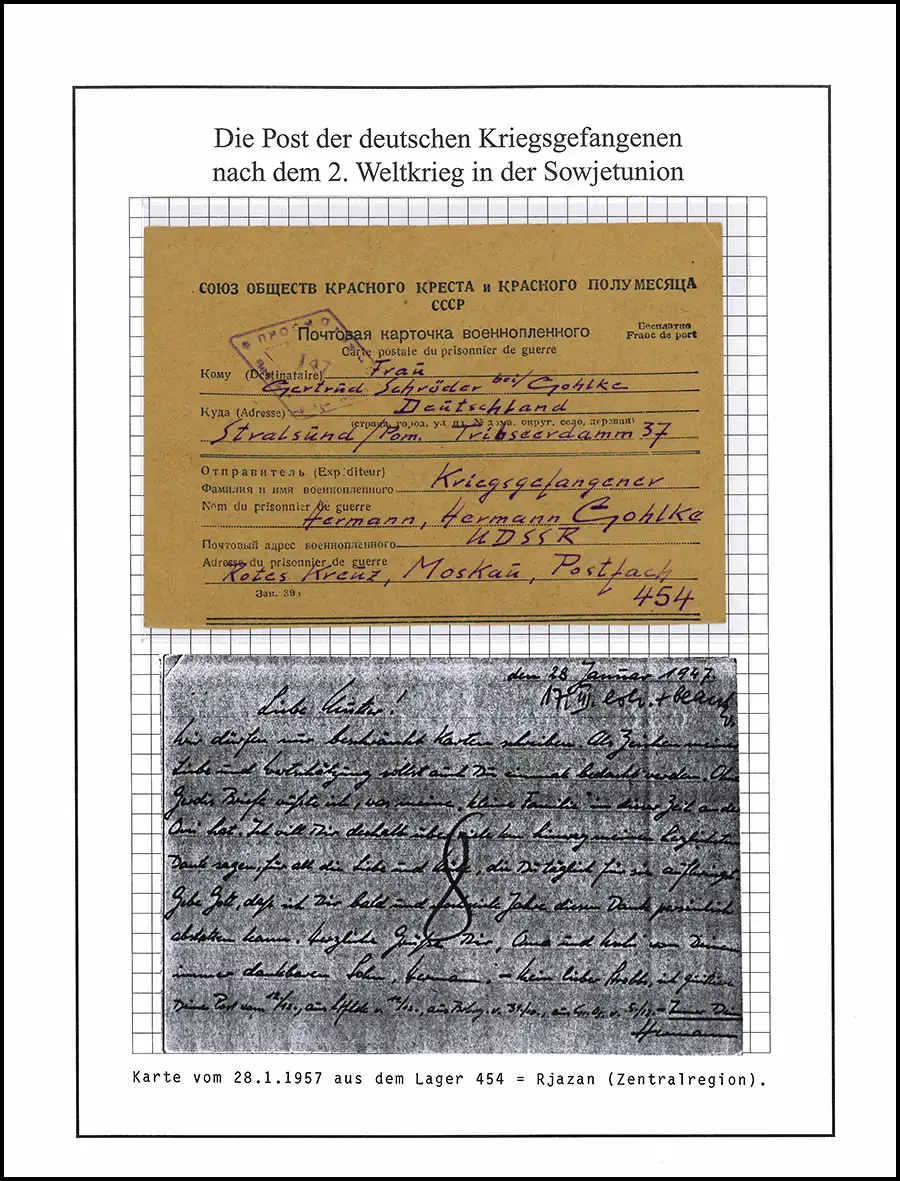 Die Post der deutschen Kriegsgefangenen
nach dem 2. Weltkrieg in der Sowjetunion
СОЮЗ ОБЩЕСТВ КРАСНОГО КРЕСТА и КРАСНОГО ПОЛУМЕСЯЦА
СССР
Почтовая карточка военнопленного
Carte postale du prisonnier de guerre
Бесплатно
Franc de port
147
Кому (Destinataire) Frau
Gertrud Schröder bei/Gohlke
Куда (Adresse) Deutschland
(страна, город, ул дома, округ, село, деревня)
Stralsund/Pom. Tribseerdamm 37
Отправитель (Expéditeur)
Фамилия и имя военнопленного Kriegsgefangener
Nom du prisonnier de guerre
Hermann, Hermann Gohlke
Почтовый адрес военнопленного UDSSR
Adresse du prisonnier de guerre
Rotes Kreuz, Moskau, Postfach
Зак. 39
454
den 28. Januar 1947
17.
Liebe Mutter!
Wir dürfen nur beschränkt Karten schreiben. Als Zeichen meiner
Liebe und Wertschätzung sollst auch Du einmal bedacht werden.
Briefe wüßte ich, was meine "kleine Familie" in dieser Zeit an der
Omi hat. Ich will Dir deshalb über hinweg meinen herzlichsten
Dank sagen, für all die Liebe und die Du täglich für sie aufbringst.
Gebe Gott, daß ich Dir bald und Jahre diesen Dank persönlich
abstatten kann. Herzliche Grüße Dir, Oma und von Deinem
immer dankbaren Sohn, Hermann. – Mein lieber ich
Deine Post vom
Hermann
8
Karte vom 28.1.1957 aus dem Lager 454 = Rjazan (Zentralregion).